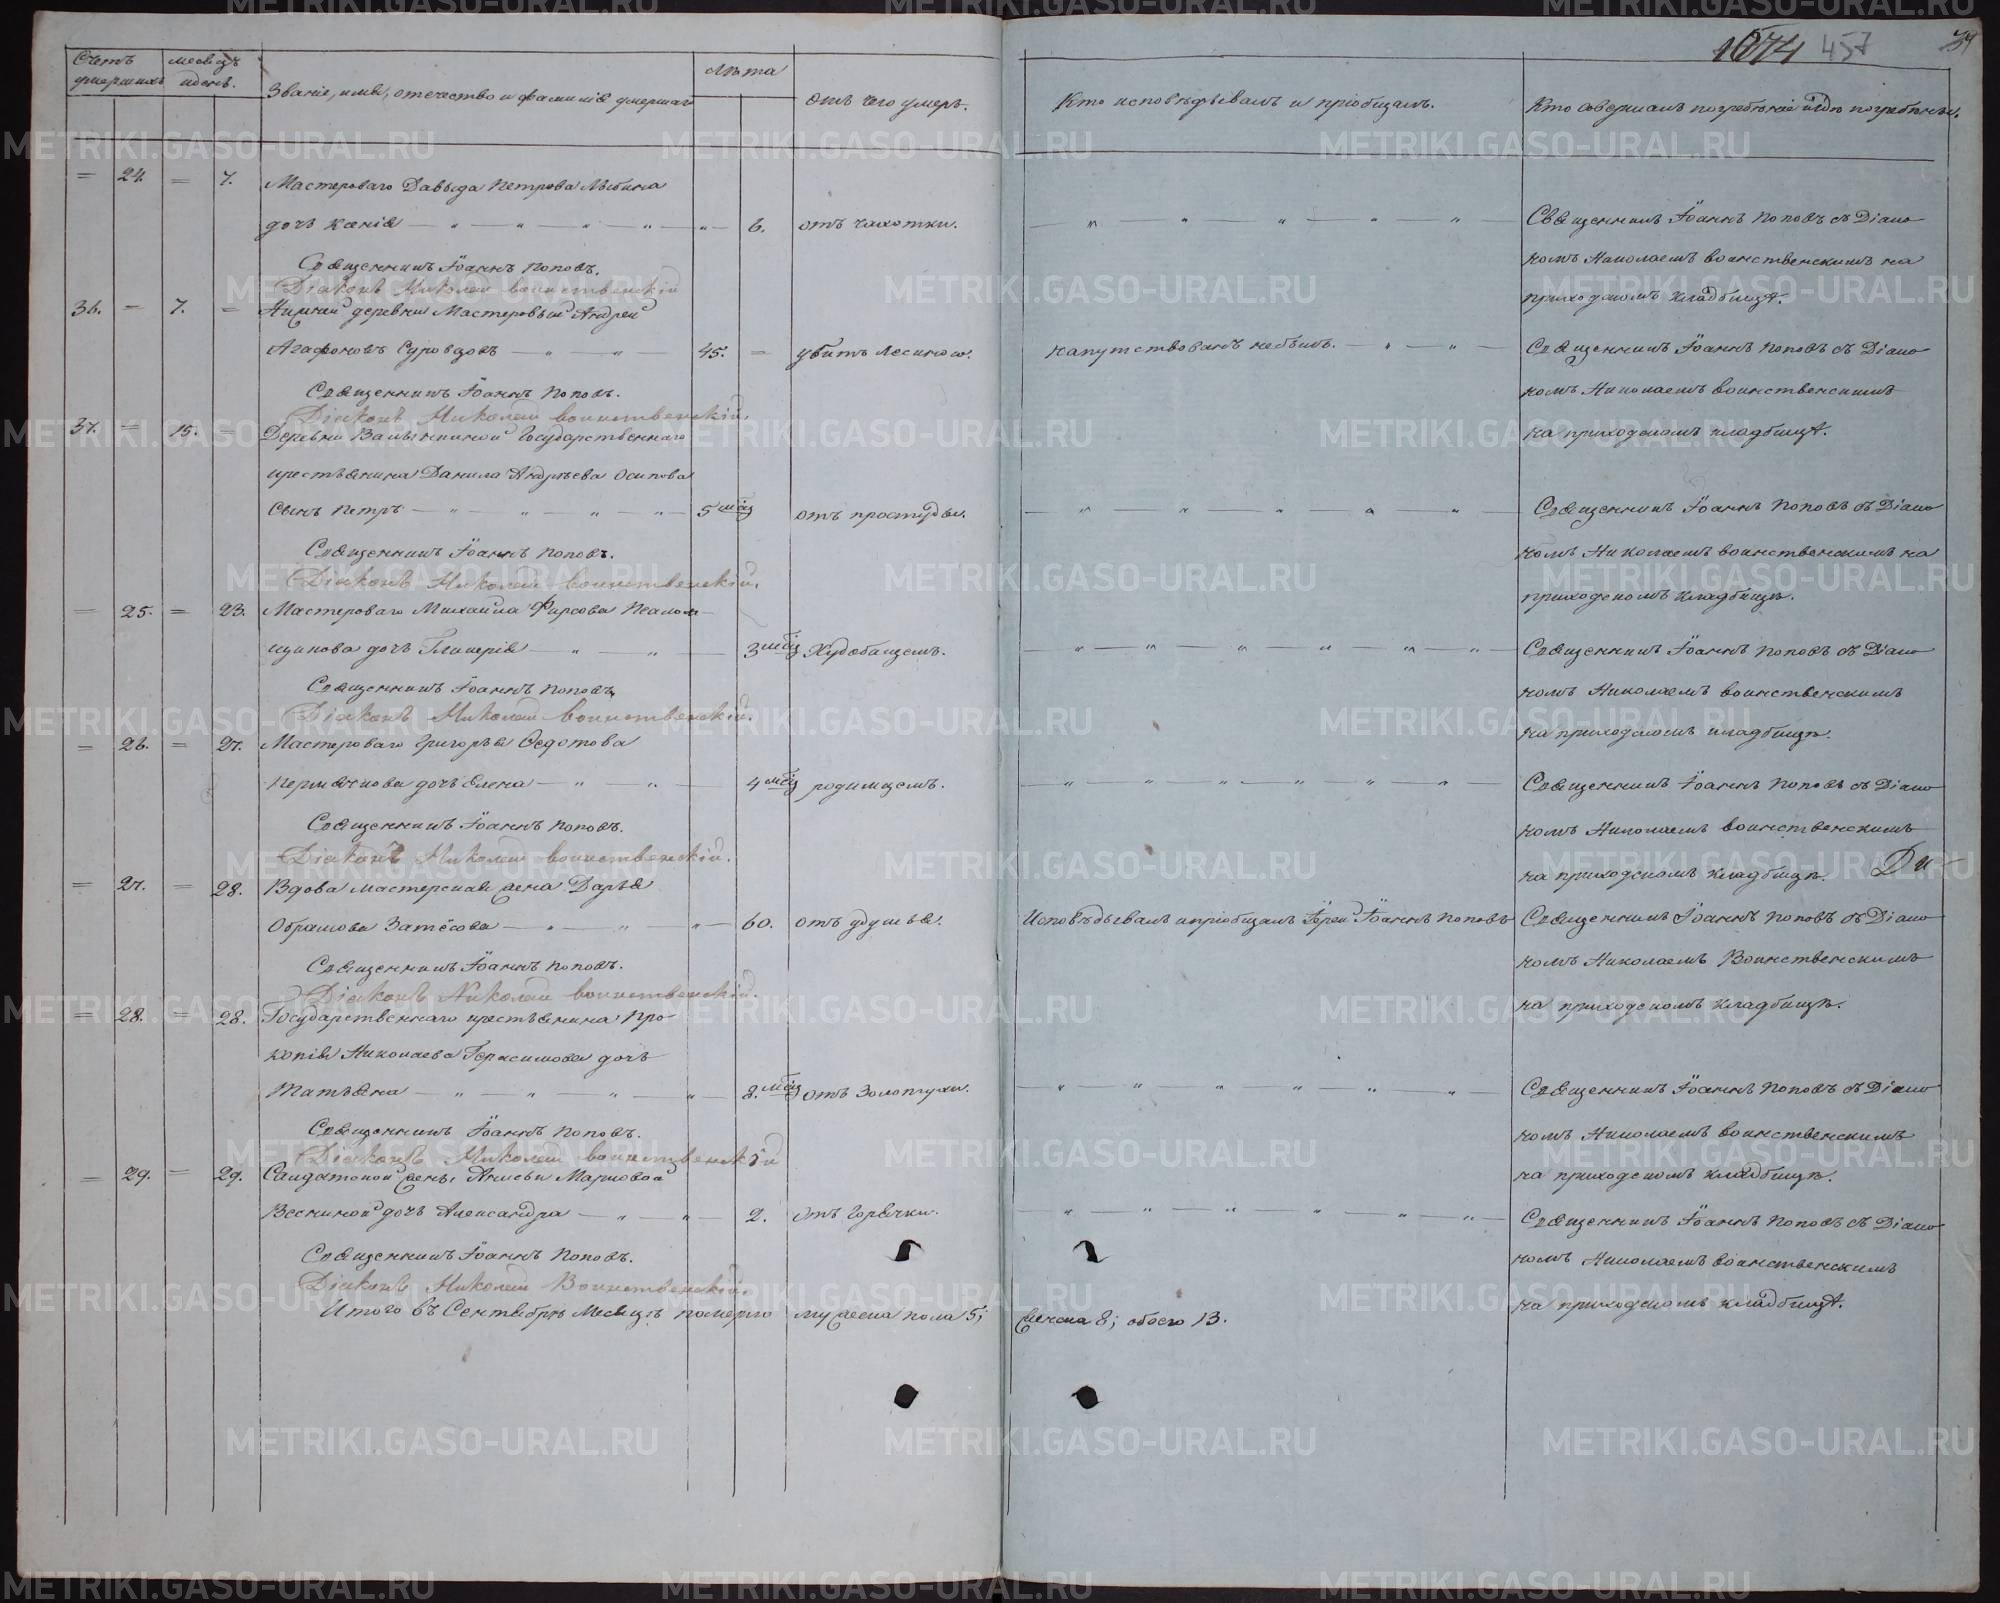 1674 457 39
Счетъ умершихъ
месяцъ и день.
Званіе, имя, отечество и фамилія умершаго
Лѣта
Отъ чего умеръ.
Кто исповѣдывалъ и пріобщалъ.
Кто совершалъ погребѣніе и гдѣ погребѣны.
= 24. = 7. Мастероваго Давыда Петрова
дочь Ксенія — „ — „ — „ — „ — „ — 6. отъ чахотки.
Священникъ Іоаннъ Поповъ съ Діако
Священникъ Іоаннъ Поповъ.
комъ Николаемъ воинственскимъ на
Діаконъ Николай воинственскій
приходскомъ кладбищѣ.
36. = 7. = деревни Мастеровый Андрей
Агафоновъ Суровцовъ — „ — „ — 45. = убитъ лесиною. напутствованъ небылъ. — „ — „ — Священникъ Іоаннъ Поповъ съ Діако
Священникъ Іоаннъ Поповъ.
комъ Николаемъ воинственскимъ
Діаконъ Николай воинственскій.
на приходскомъ кладбищѣ.
37. = 15. = Деревни Государственнаго
крестьянина Данила Андрѣева Осипова
сынъ Петръ — „ — „ — „ — „ — 5 мѣц отъ простуды.
Священникъ Іоаннъ Поповъ съ Діако
Священникъ Іоаннъ Поповъ.
комъ Николаемъ воинственскимъ на
Діаконъ Николай воинственскій.
приходскомъ кладбищѣ.
= 25. = 23. Мастероваго Михаила Фирсова
щикова дочь Гликерія — „ — „ — 3 мѣц Худобищемъ.
Священникъ Іоаннъ Поповъ съ Діако
Священникъ Іоаннъ Поповъ.
комъ Николаемъ воинственскимъ
Діаконъ Николай воинственскій.
на приходскомъ кладбищѣ.
= 26. = 27. Мастероваго Григорья Ѳедотова
Пермякова дочь Елена — „ — „ — 4 мѣц родимцемъ.
Священникъ Іоаннъ Поповъ съ Діако
Священникъ Іоаннъ Поповъ.
комъ Николаемъ воинственскимъ
Діаконъ Николай воинственскій.
на приходскомъ кладбищѣ. Ди—
= 27. = 28. Вдова мастерская жена Дарья
Обрамова Затѣсова — „ — „ — „ — 60. отъ удушья. Исповѣдывалъ и пріобщалъ Іерей Іоаннъ Поповъ Священникъ Іоаннъ Поповъ съ Діако
Священникъ Іоаннъ Поповъ.
комъ Николаемъ Воинственскимъ
Діаконъ Николай воинственскій.
на приходскомъ кладбищѣ.
= 28. = 28. Государственнаго крестьянина Про-
копія Николаева Герасимова дочь
Татьяна — „ — „ — „ — „ — 2. мѣц отъ Золотухи.
Священникъ Іоаннъ Поповъ съ Діако
Священникъ Іоаннъ Поповъ.
комъ Николаемъ воинственскимъ
Діаконъ Николай воинственскій
на приходскомъ кладбищѣ.
= 29. = 29. Салдатской жены Марковой
дочь Александра — „ — „ — 2. отъ Горячки.
Священникъ Іоаннъ Поповъ съ Діако
Священникъ Іоаннъ Поповъ.
комъ Николаемъ воинственскимъ
Діаконъ Николай Воинственскій.
на приходскомъ кладбищѣ.
Итого въ Сентябрѣ Месяцѣ померло мужеска пола 5; женска 8; обоего 13.
METRIKI.GASO-URAL.RU